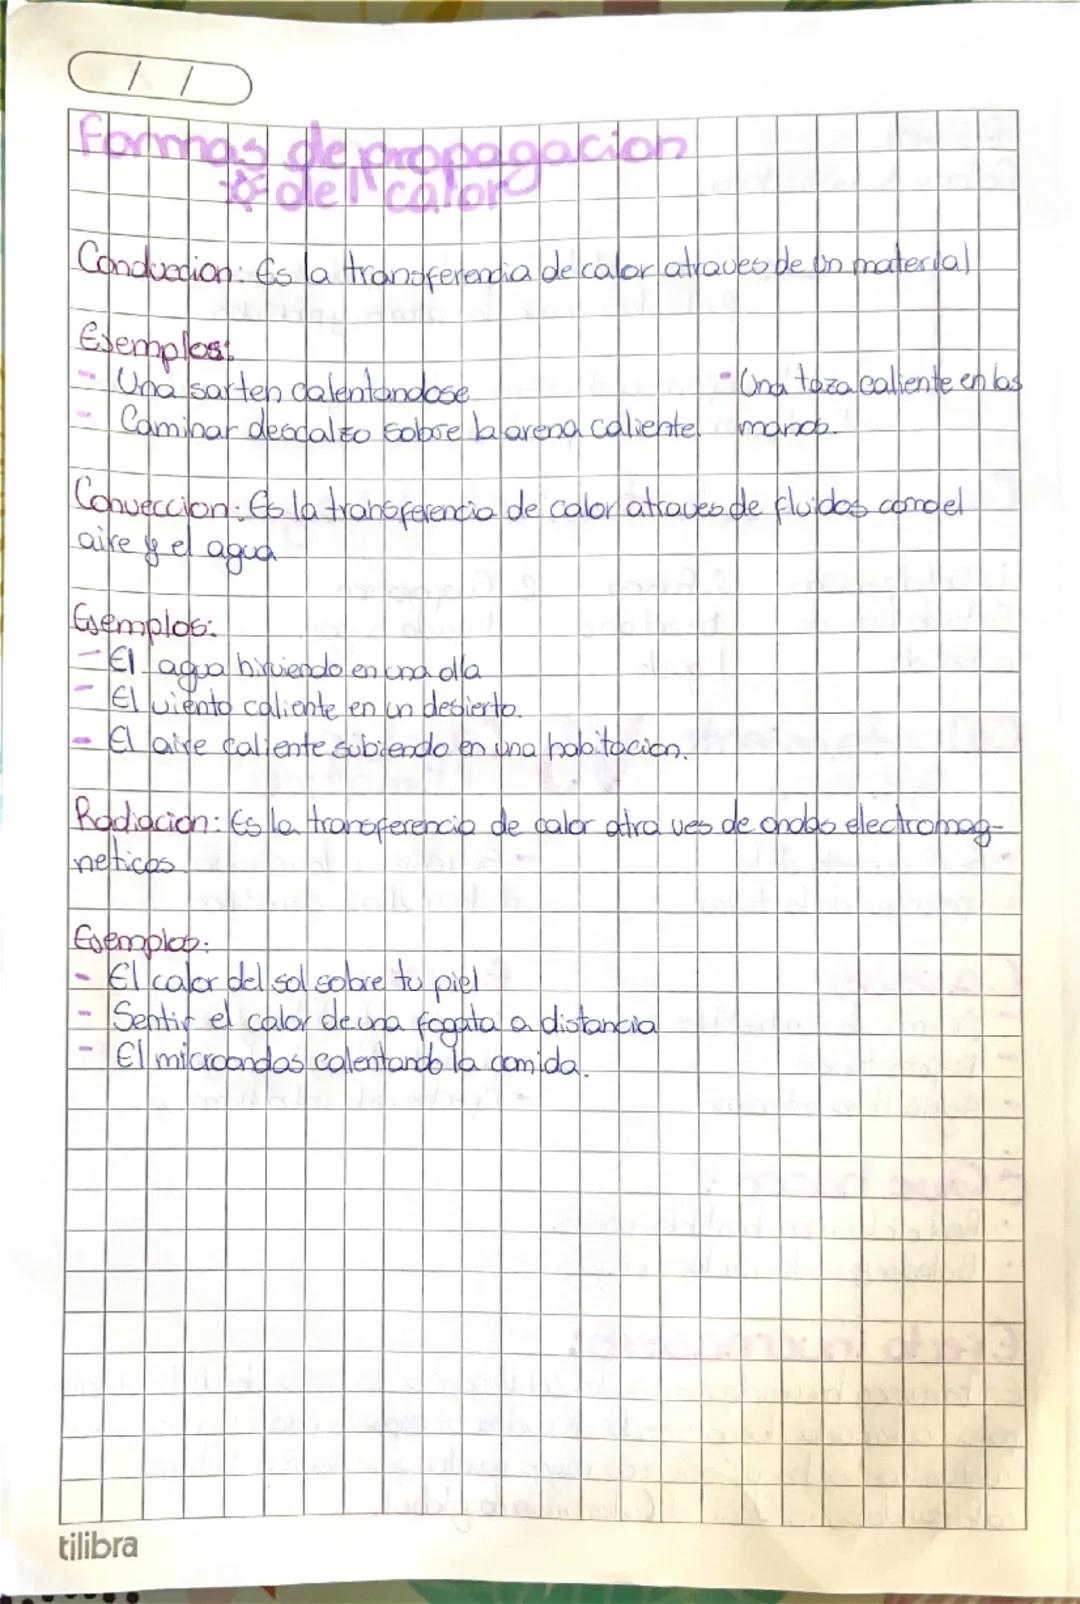 / /
Formas de propagacion
del calor
Conduccion: Es la transferencia de calor atraves de un material
Ejemplos:
- Una sarten calentandose
- Caminar descalzo sobre la arena caliente.
- Una taza caliente en las
manos.
Conveccion: Es la transferencia de calor atraves de fluidos como el
aire y el agua
Ejemplos:
- El agua hirviendo en una olla
- El viento caliente en un desierto.
- El aire caliente subiendo en una habitacion.
Radiacion: Es la transferencia de calor atra ves de ondas electromag-
neticas
Ejemplos:
- El calor del sol sobre tu piel
- Sentir el calor de una fogata a distancia
- El microondas calentando la comida.
tilibra